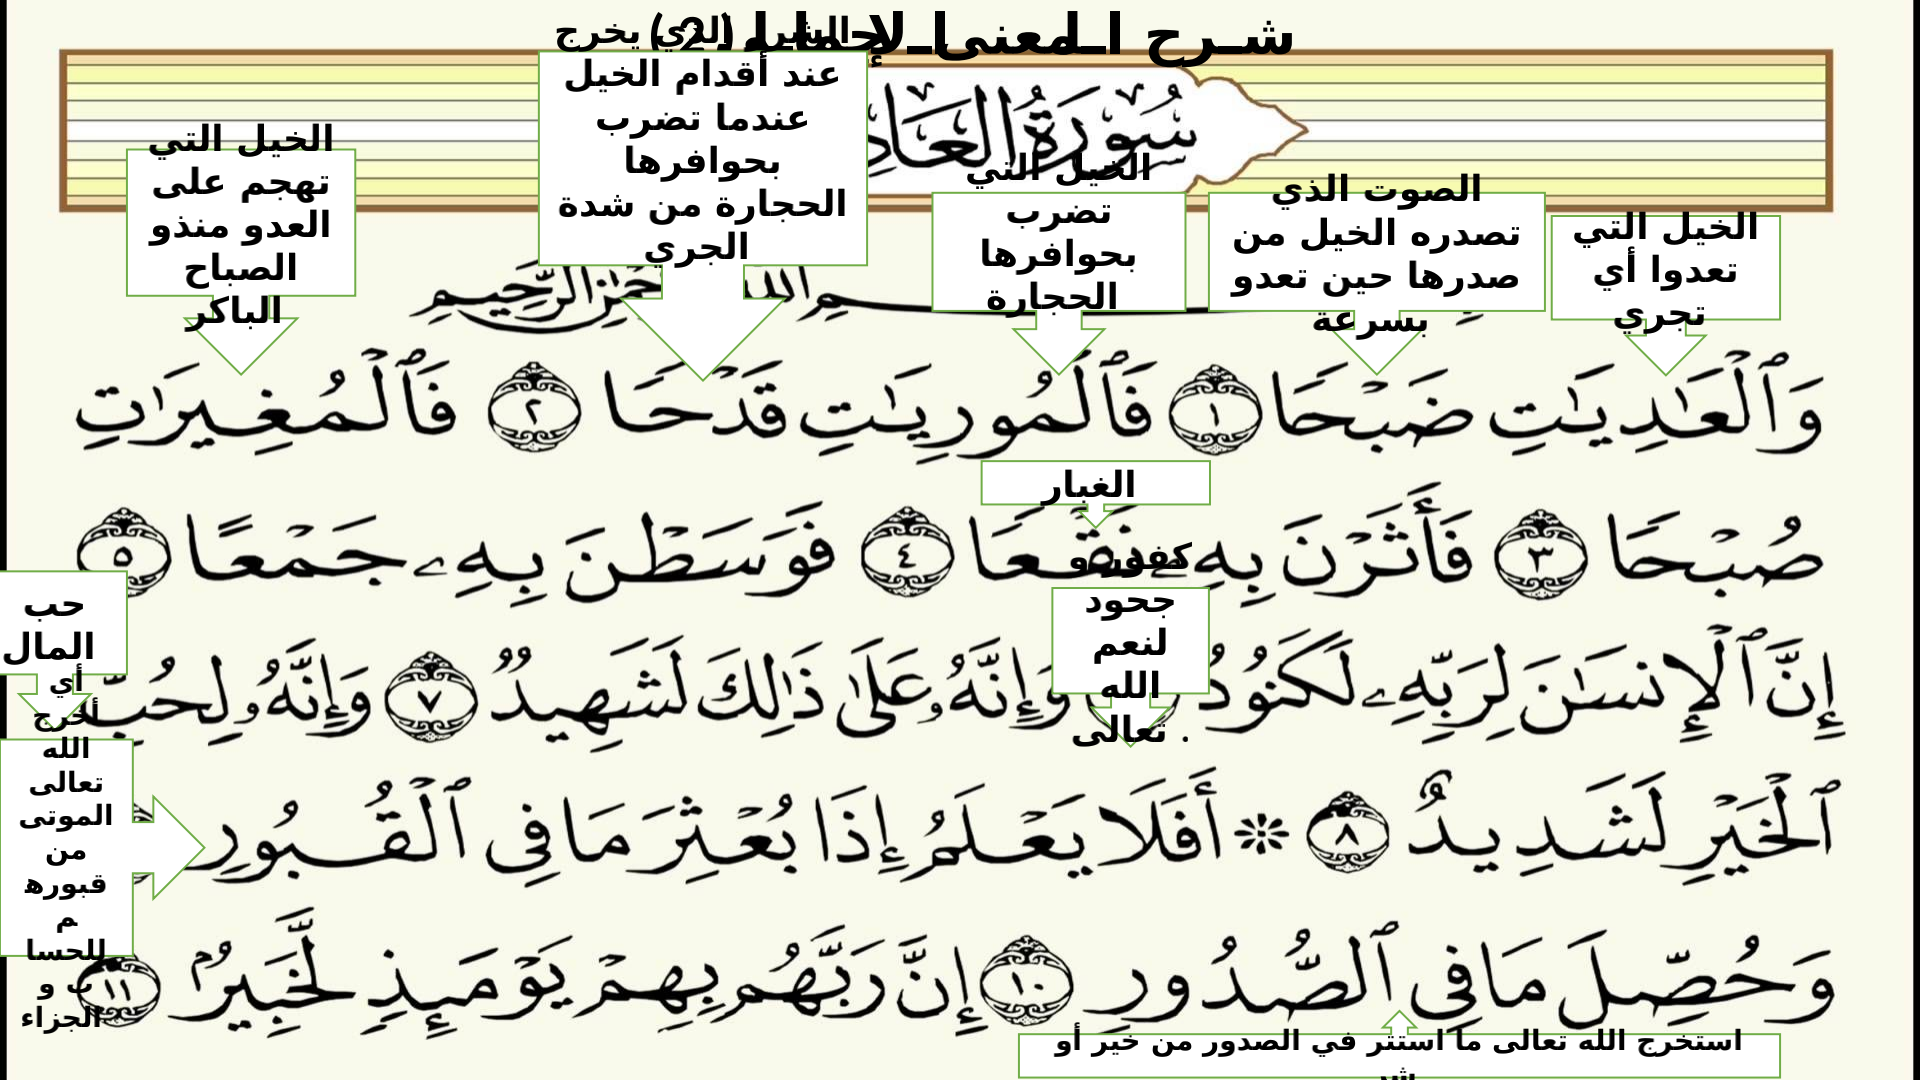 شـرح الـمعنى الإجمالي ( 2 )
سُورَةُ العَاد
الشرر الذي يخرج
عند أقدام الخيل
عندما تضرب
بحوافرها
الحجارة من شدة
الجري
الخيل التي
تهجم على
العدو منذو
الصباح
الباكر
الخيل التي
تضرب
بحوافرها
الحجارة
الصوت الذي
تصدره الخيل من
صدرها حين تعدو
بسرعة
الخيل التي
تعدوا أي
تجري
وَٱلْعَٰدِيَٰتِ ضَبْحًا ١ فَٱلْمُورِيَٰتِ قَدْحًا ٢ فَٱلْمُغِيرَٰتِ
الغبار
صُبْحًا ٣ فَأَثَرْنَ بِهِۦ نَقْعًا ٤ فَوَسَطْنَ بِهِۦ جَمْعًا ٥
كفور و
جحود
لنعم
الله
تعالى .
حب
المال
إِنَّ ٱلْإِنسَٰنَ لِرَبِّهِۦ لَكَنُودٌ وَإِنَّهُۥ عَلَىٰ ذَٰلِكَ لَشَهِيدٌ ٧ وَإِنَّهُۥ لِحُبِّ
أي
أخرج
الله
تعالى
الموتى
من
قبوره
م
للحسا
ب و
الجزاء
ٱلْخَيْرِ لَشَدِيدٌ ٨ ۞ أَفَلَا يَعْلَمُ إِذَا بُعْثِرَ مَا فِى ٱلْقُبُورِ
وَحُصِّلَ مَا فِى ٱلصُّدُورِ ١٠ إِنَّ رَبَّهُم بِهِمْ يَوْمَئِذٍ لَّخَبِيرٌۢ ١١
استخرج الله تعالى ما استتر في الصدور من خير أو
شر